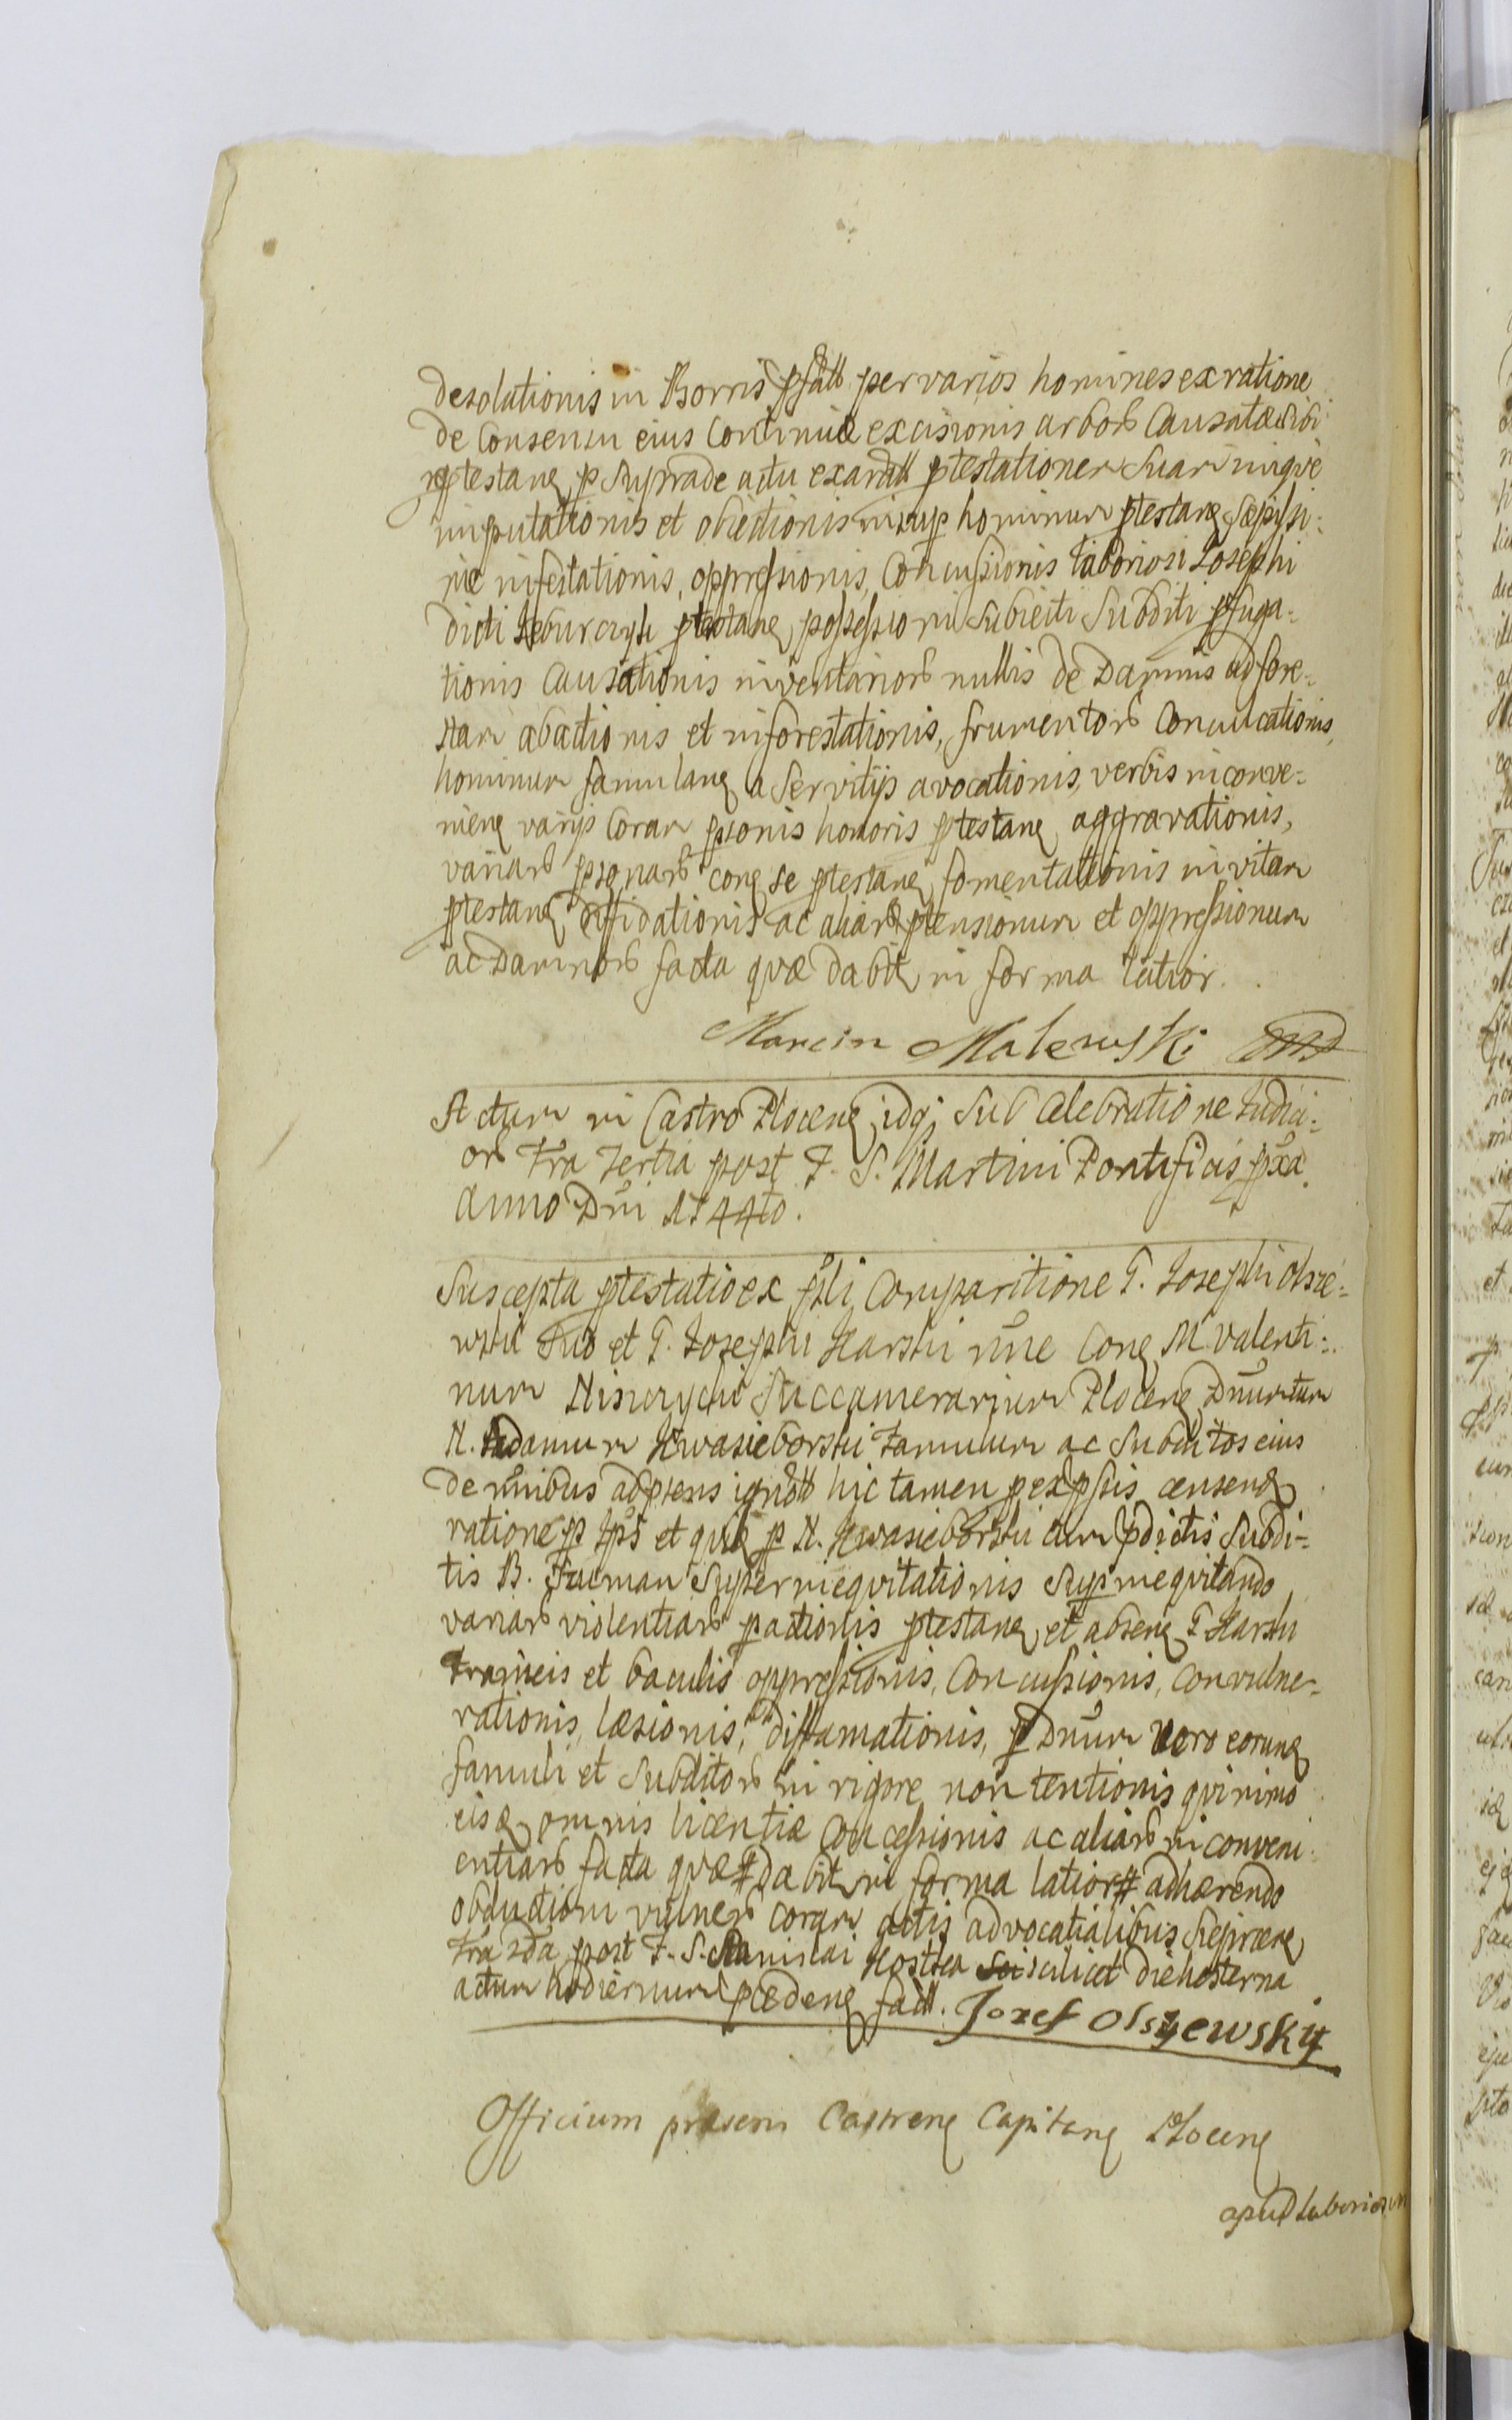 desolationis in Borris pfatt per varios homines ex ratione
de Consensu eius Continuæ excisionis arborb Causatæ sibi
ptestang p supprade actu exaratt ptestationem Suam inique
imputationis et obiectionis insup hominum ptestang sæpissi:
mæ infestationis, oppressionis, Concussionis laboriosi Josephi
dicti ptestang possessioni Subiecti Subditi pfuga:
tionis Causationis inventariorb nullis de Damnis ad fore:
stam abactionis et inforestationis, frumentorb Conculcationis,
hominum famulang a Servitijs avocationis, verbis inconve:
nieng varijs Coram psonis honoris ptestang aggravationis,
variarb psonarb cong se ptestang fomentationis in vitam
ptestang diffidationis ac aliarb ptensionum et oppressionum
ac Damnorb facta quæ dabit in forma latior.
Marcin Malewski
Actum in Castro Ploceng idq; Sub Celebratione Judici:
orb Fra Tertia post F. S. Martini Pontificis pxa
Anno Dni 1744to.
Suscepta ptestatio ex psli Comparitione G. Josephi Olsze:
wski Suo et G. Josephi Karski nne Cong M Valenti:
num Niszczycki Succamerarium Ploceng Dnum tum
N. Adamum Kwasieborski Famulum ac Subditos eius
de nnibus adpræns ignott hic tamen p expssis censeng
ratione p Ips et quid p N. Kwasieborski cum pdictis Subdi:
tis B. Superinequitationis Supinequitando
variarb violentiarb pactionis ptestang et abseng G Karski
Frameis et baculis oppressionis, Concussionis, Convulne:
rationis, læsionis, diffamationis, p Dnum Vero eorung
famuli et Subditorb in rigore non tentionis quinimo
eisq omnis licentiæ Concessionis ac aliarb inconveni
entiarb facta quæ # Dabit in forma latior # adhærendo
obductioni vulnerb coram actis advocatialibus Sieprceng
Fra 2da post F. S. Stanislai Kostka scilicet die hesterna
actum hodiernum præcedeng fact. Jozef Olszewsky
Officium præsens Castreng Capitang Ploceng
apud laboriosum